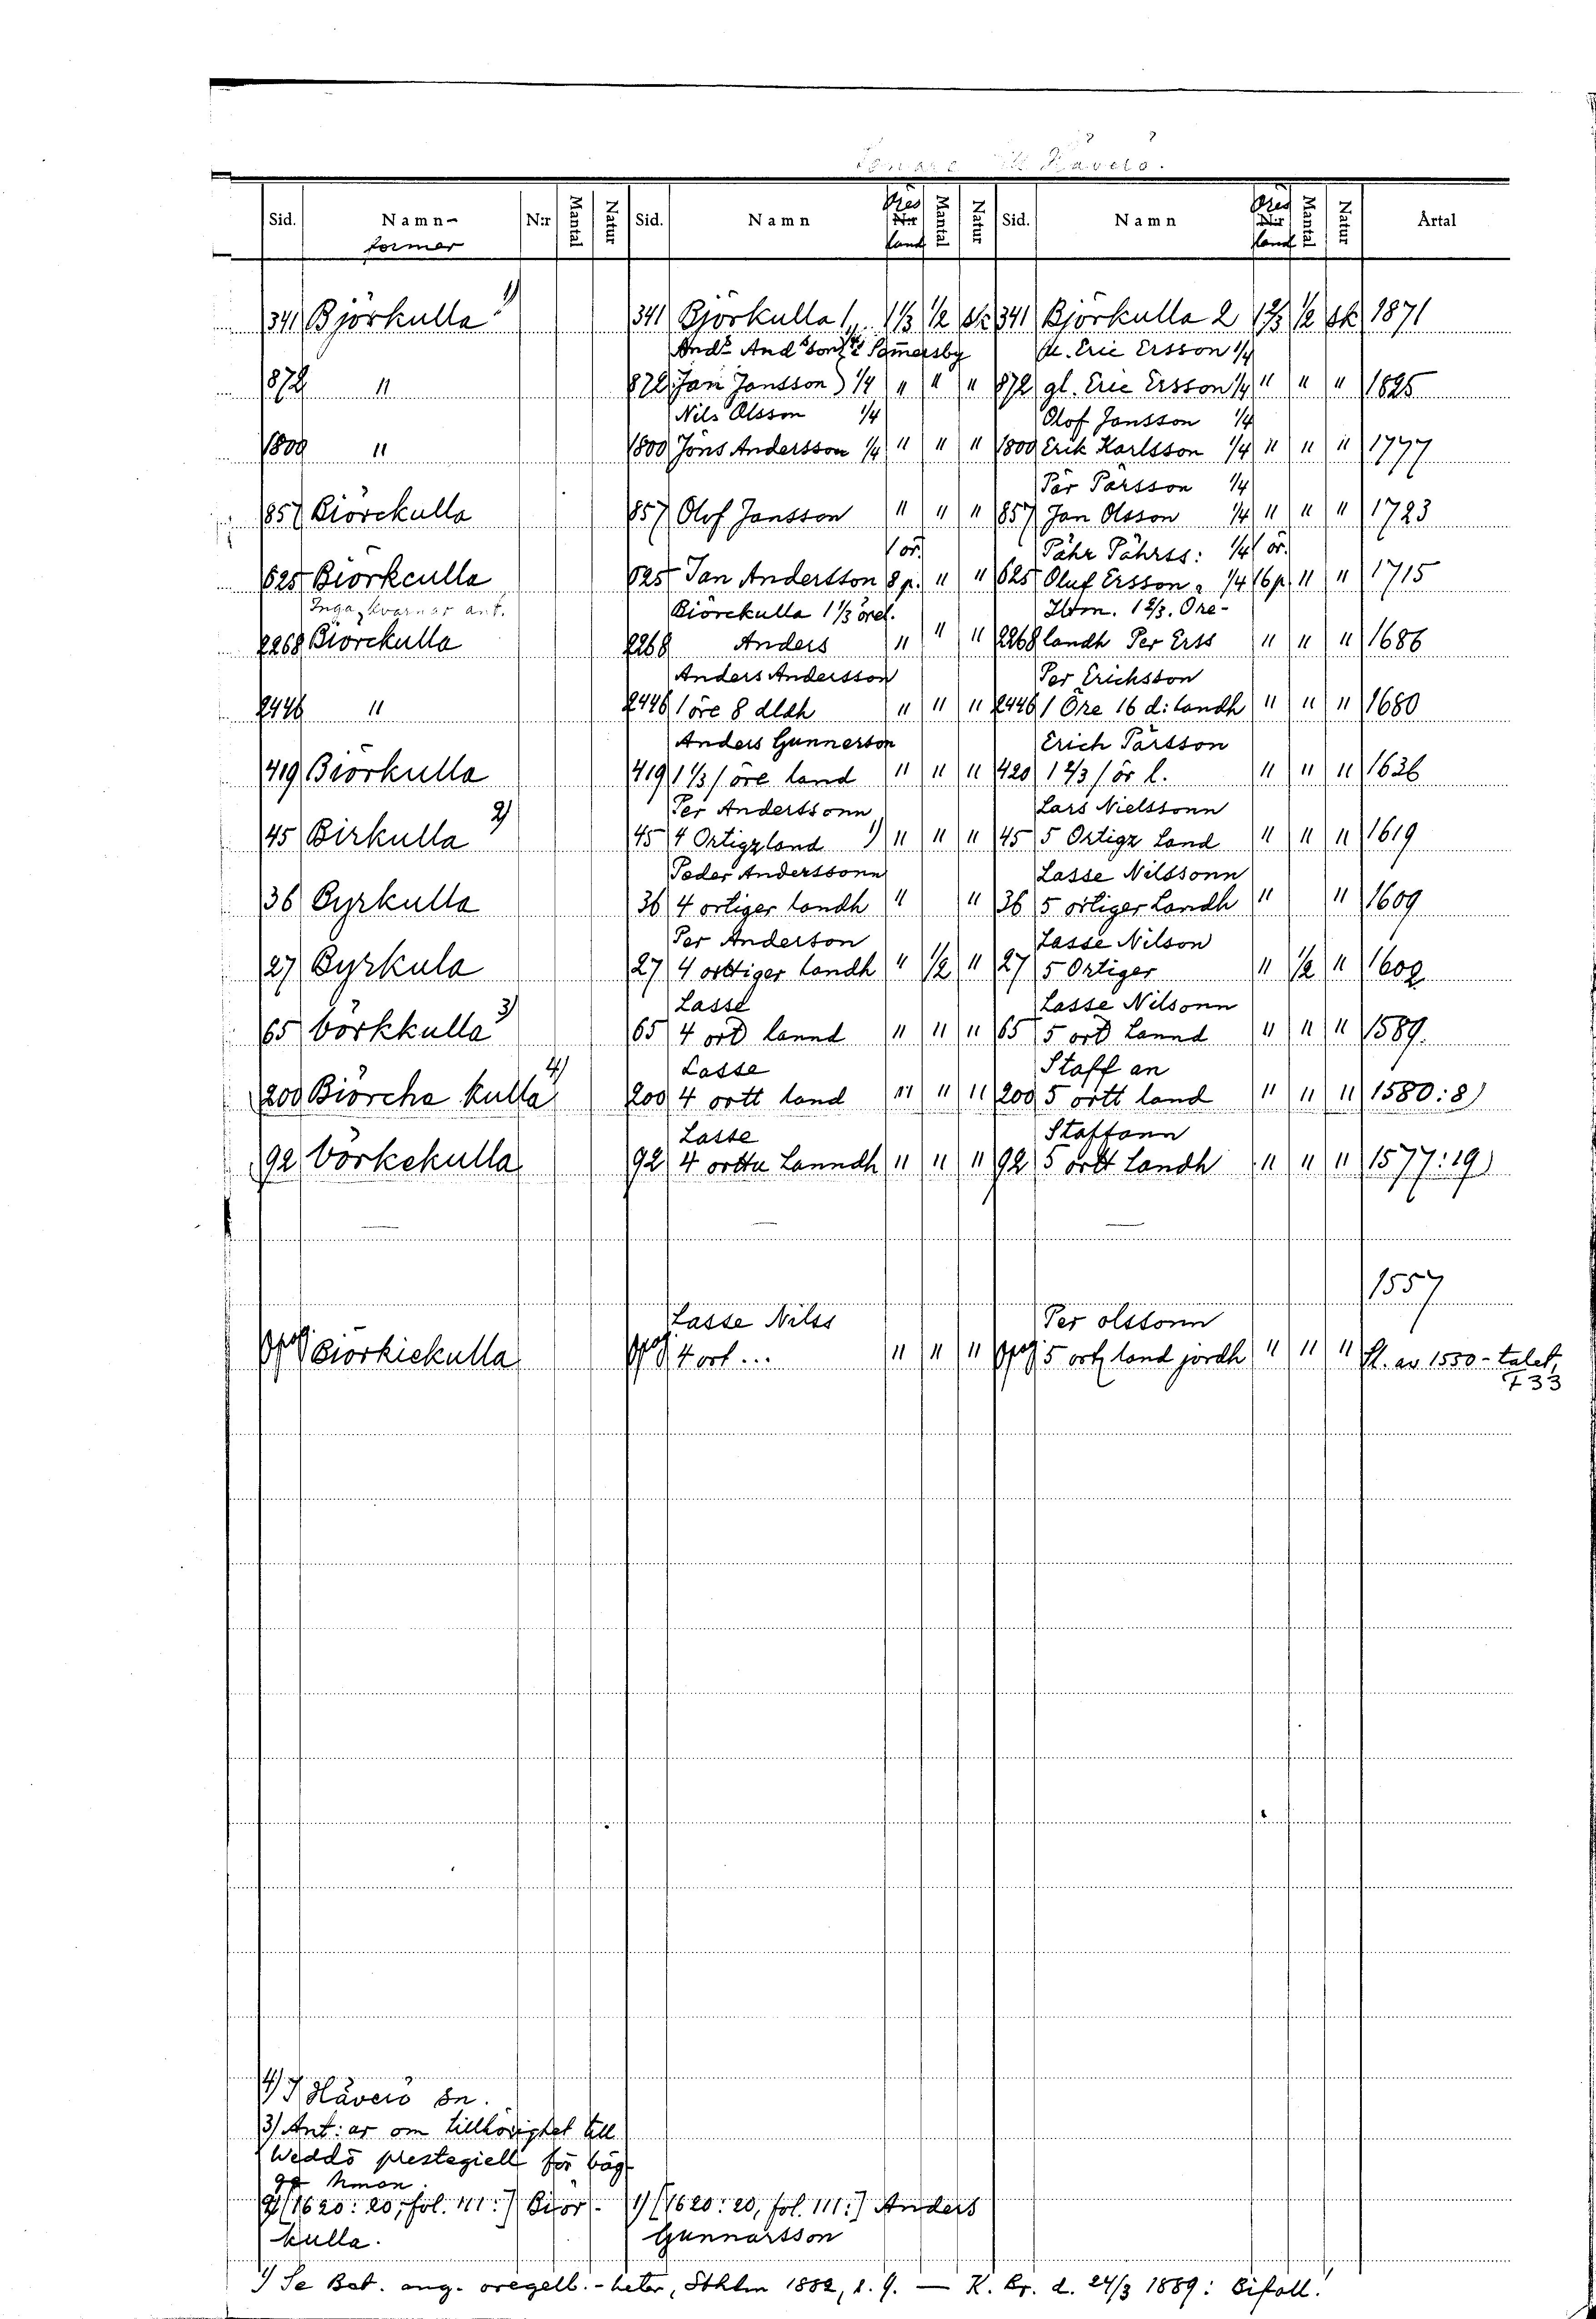 Häverö.
Sid. Namn- N:r Mantal Natur Sid. Namn Öres N:r Mantal Natur Sid. Namn Öres N:r Mantal Natur Årtal
former land land
341 Björkulla 1) 341 Björkulla 1 1 1/3 1/2 Sk 341 Björkulla 2 1 2/3 1/2 sk 1871
Sommersby Eric Ersson 1/4
872 " 872 Jan Jansson 1/4 " " " 872 gl. Eric Ersson 1/4 " " " 1825
Nils Olsson 1/4 Olof Jansson 1/4
1800 " 1800 Jöns Andersson 1/4 " " " 1800 Erik Karlsson 1/4 " " " 1777
Pär Pärsson 1/4
857 Biörckulla 857 Olof Jansson " " " 857 Jan Olsson 1/4 " " " 1723
1 ör. Pähr Pährss: 1/4 1 ör.
625 Biörkculla 625 Jan Andersson 8 p. " " 625 Oluf Ersson 1/4 16 p " " 1715
Inga kvarnar ant. Biörckulla 1 1/3 örel. Ibm. 1 2/3. Öre-
2268 Biörckulla 2268 Anders " " " 2268 landh Per Erss " " " 1686
Anders Andersson Per Erichsson
2446 " 2446 1 öre 8 dldh " " " 2446 1 Öre 16 d: landh " " " 1680
Anders Gunnerson Erich Pärsson
419 Biörkulla 419 1 1/3 / öre land " " " 420 1 2/3 / ör l. " " " 1636
Per Anderssonn Lars Nielssonn
45 Birkulla 2) 45 4 Örtigzland 1) " " " 45 5 Örtigz Land " " " 1619
Peder Anderssonn Lasse Nilssonn
36 Byrkulla 36 4 örtiger landh " " 36 5 örtiger Landh " " 1609
Per Anderson Lasse Nilson
27 Byrkula 27 4 örttiger Landh " 1/2 " 27 5 Örtiger " 1/2 " 1602
Lasse Lasse Nilsonn
65 börkkulla 3) 65 4 ort lannd " " " 65 5 ort Lannd " " " 1589.
Lasse Staff an
200 Biörcha kulla 4) 200 4 ortt land " " " 200 5 örtt land " " " 1580:8)
Lasse Staffann
92 börkekulla 92 4 ortta Lanndh " " " 92 5 örtt Landh " " " 1577:19)
— — —
1557
Lasse Nilss Per olssonn
Biörkiekulla 4 ort... " " " 5 ortz land jordh " " " sl. av 1550-talet,
F33
4) I Häverö sn.
3) Ant:ar om tillhörighet till
Weddö prestegiell för båg-
ge hman.
2) [1620:20, fol. 111:] Biör- 1) [1620:20, fol. 111:] Anders
kulla. Gunnarsson
1) Se Bet. ang. oregelb.-heter, Sthlm 1882, s. 9. — K. Br. d. 24/3 1889: Bifall.